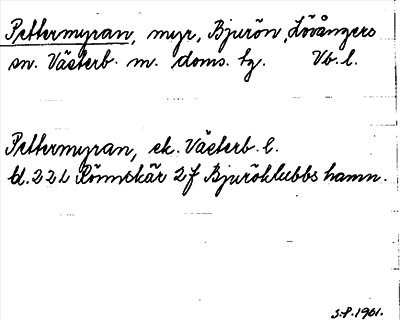 Pettermyran, myr, Bjurön, Lövångers
sn. Västerb. m. doms. tg. Vb. l.
Pettermyran, ek. Västerb. l.
bl. 22 L Rönnskär 2 f Bjuröklubbs hamn.
1961.